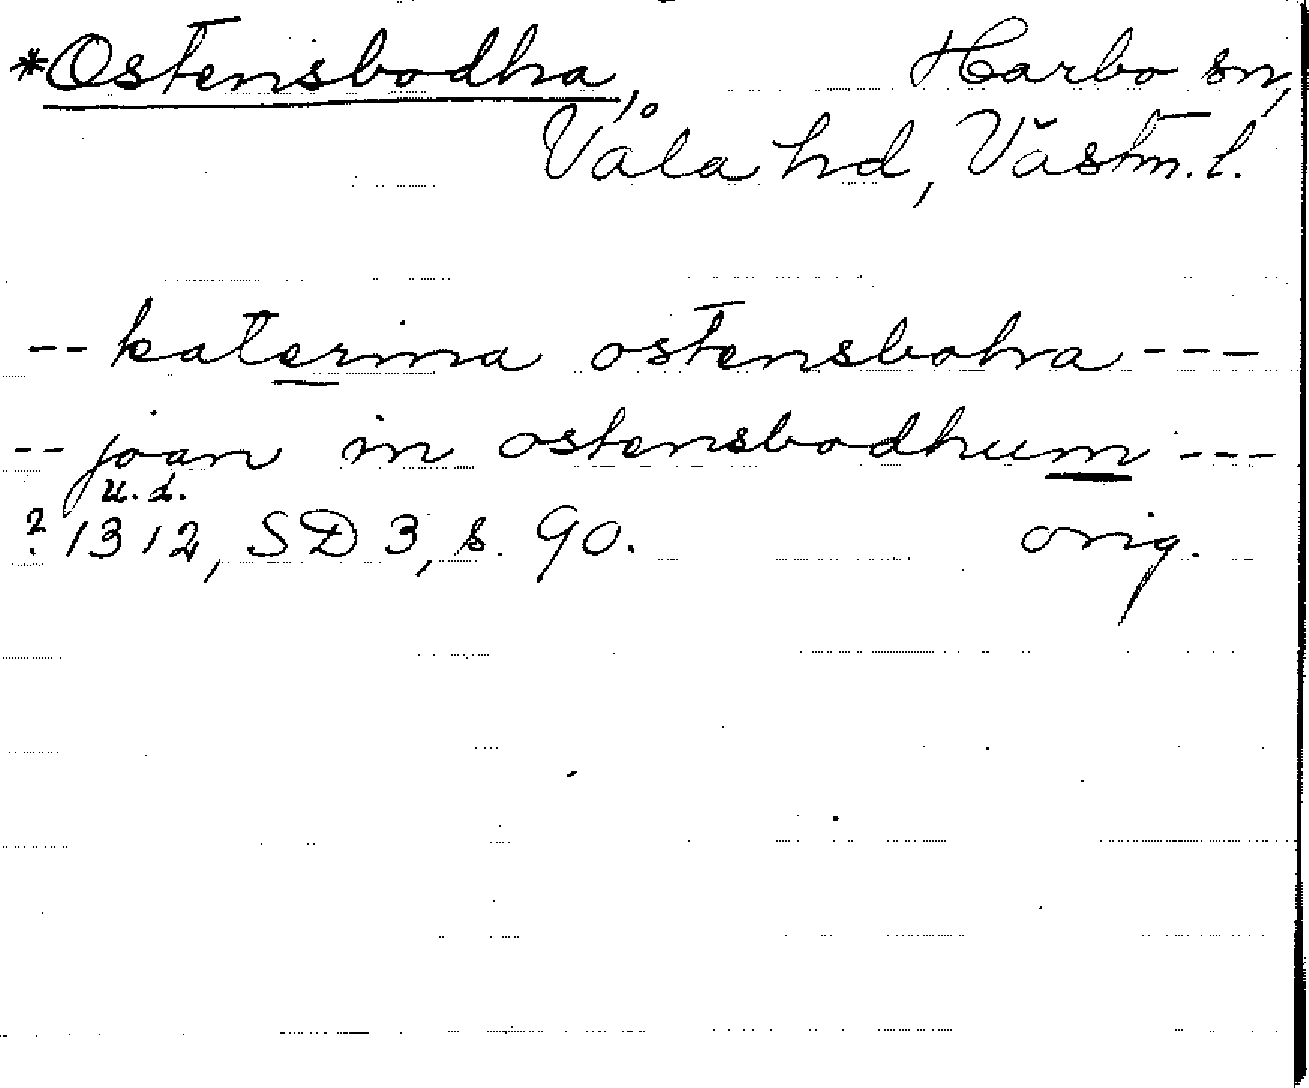 *Ostensbodha, Harbo sn,
Våla hd, Västm. l.
-- katerina ostensboha ---
-- joan in ostensbodhum ---
u. d.
? 1312, SD 3, s. 90. orig.